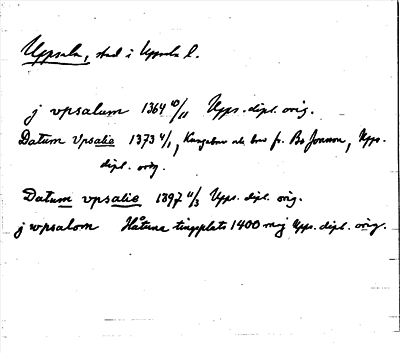 Uppsala, stad i Uppsala l.
j vpsalum 1364 10/11 Upps. dipl. orig.
Datum Vpsalie 1373 4/1, Kungabrev, Bo Jonson, Upps.
dipl. orig.
Datum vpsalie 1397 11/3 Upps. dipl. orig.
j wpsalom Håtuna tingsplats 1400 maj Upps. dipl. orig.